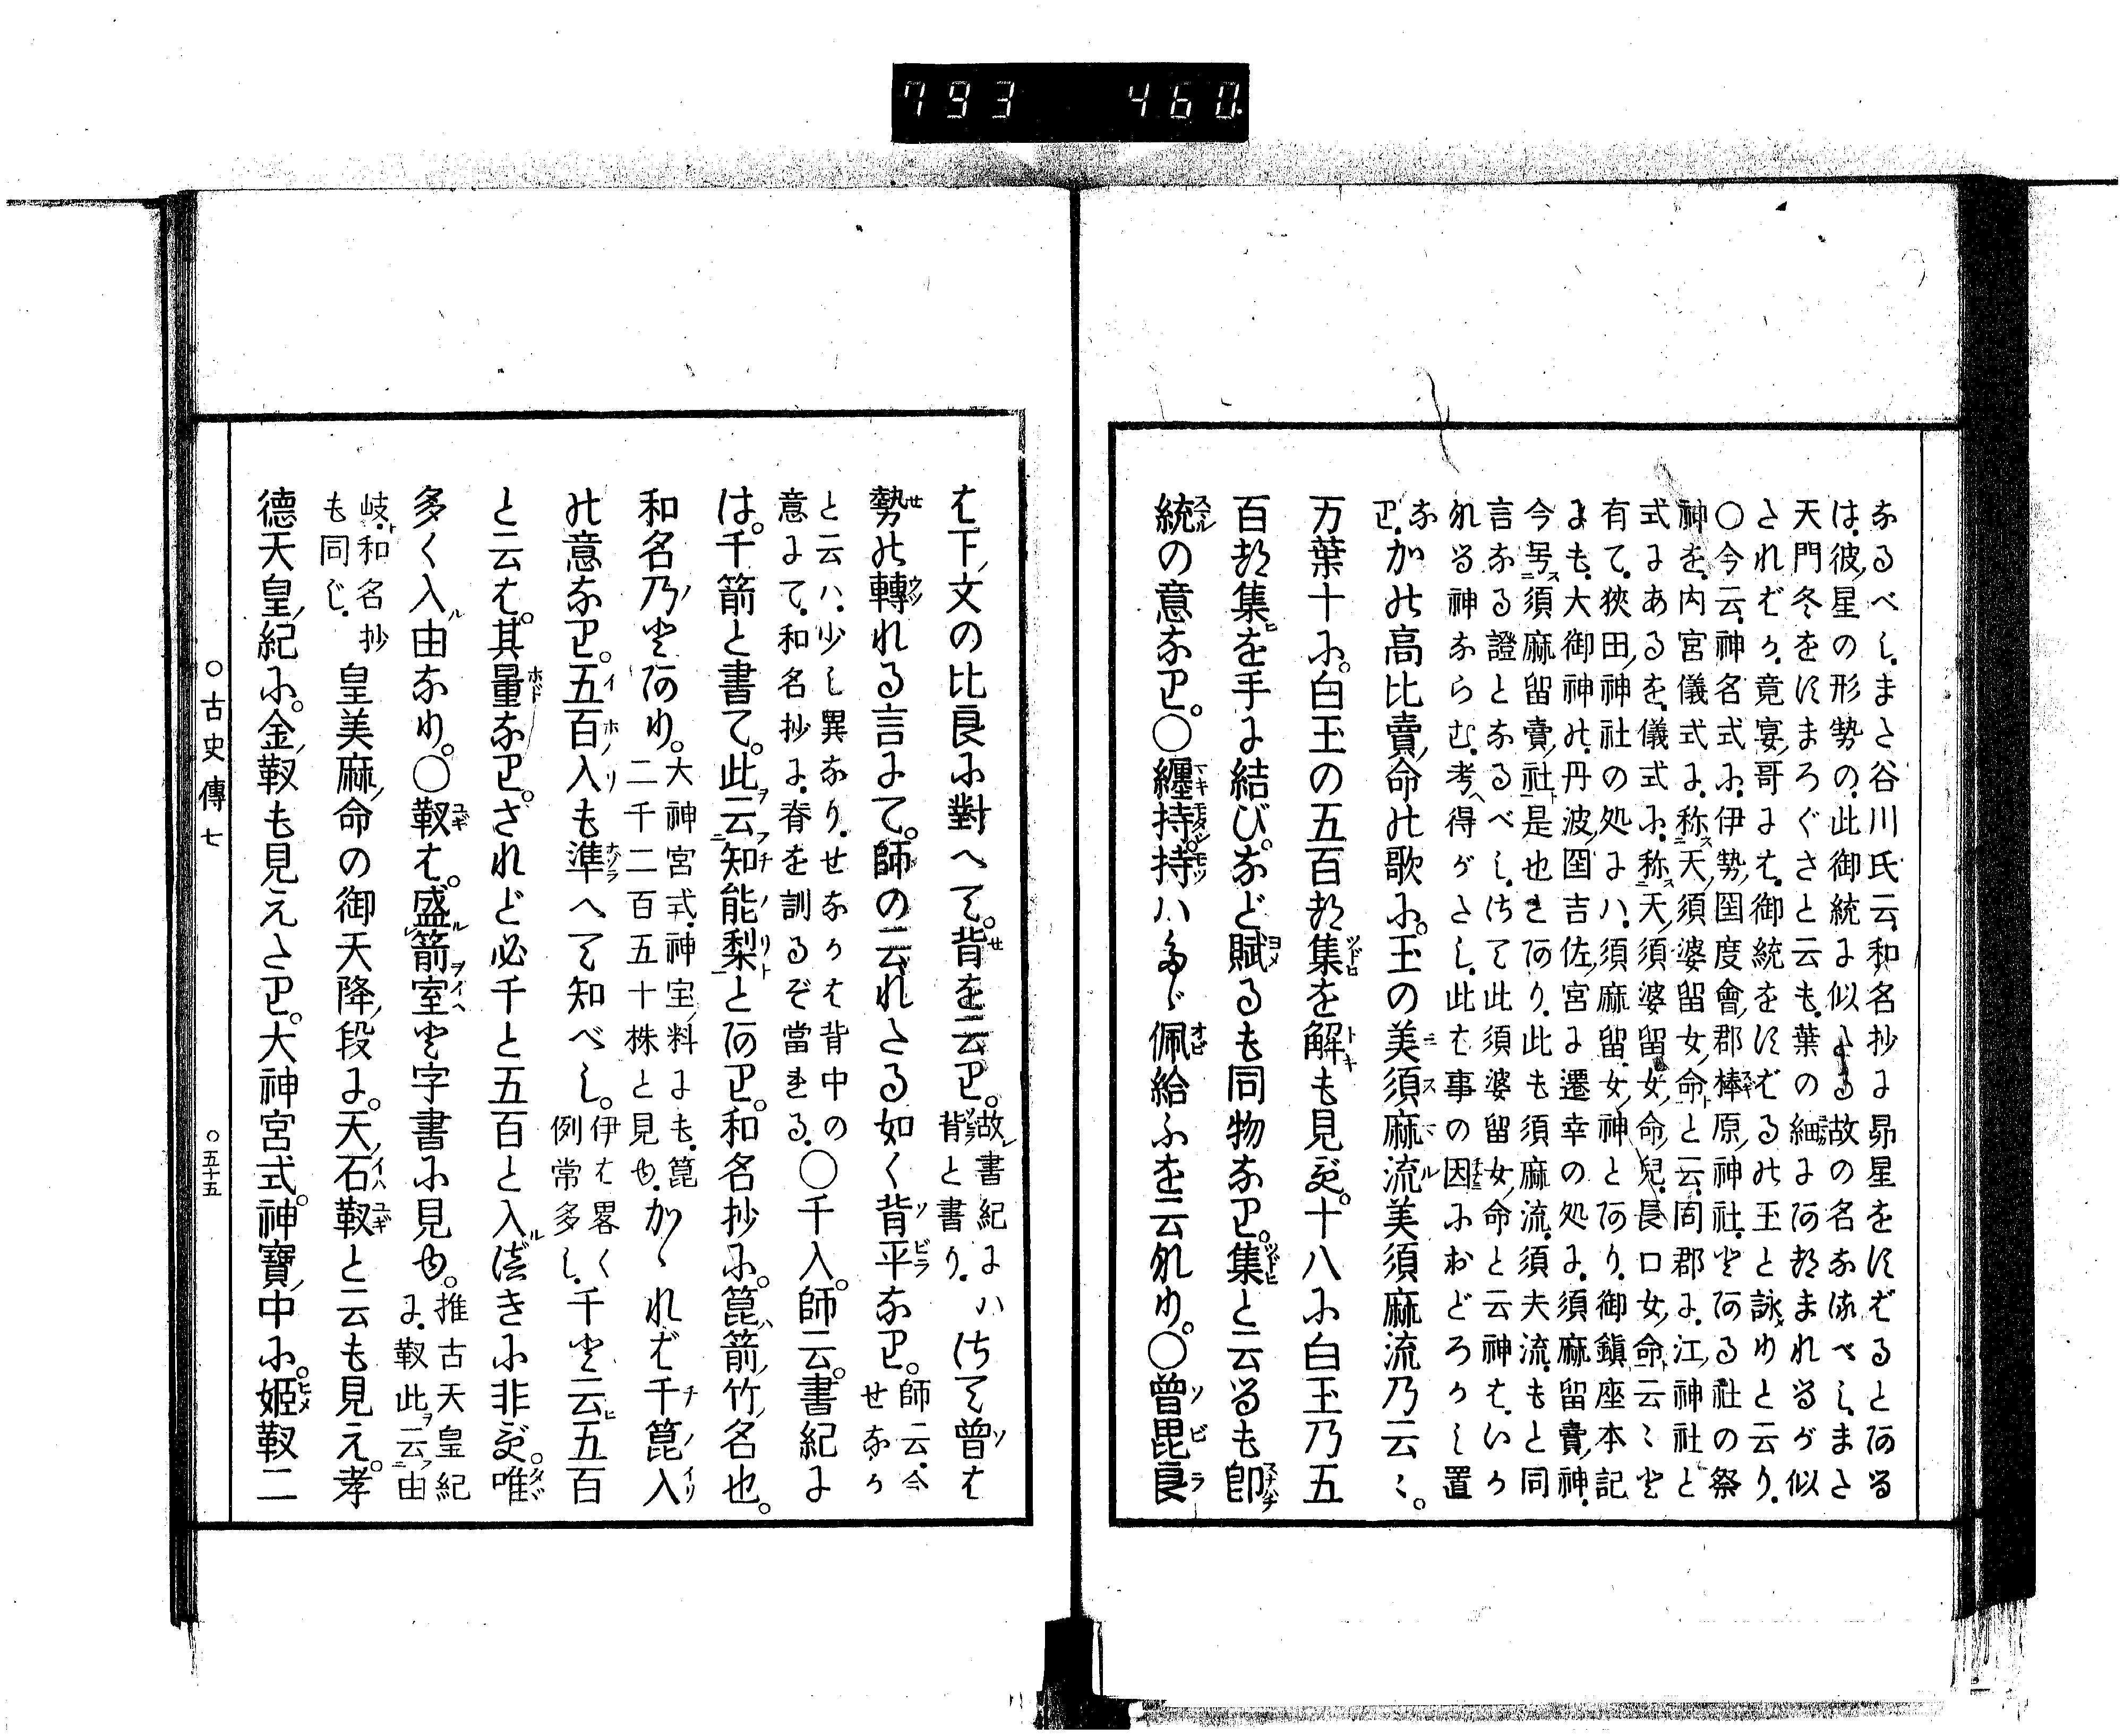 793 460
なるべし。まさ谷川氏云、和名抄に昴星をすばるとある
は、彼ノ星の形勢の、此御統に似たる故の名なるべし。また
天門冬をすまろぐさと云も、葉の細に有まれるが似
たればか、竟宴ノ哥には、御統をすばるの玉と詠めと云り。
○今云、神名式に、伊勢ノ国度會ノ郡棒原ノ神社とある社の祭
神を、内宮儀式に、称天ノ須婆留女ノ命と云、同郡に、江ノ神社と
式にあるを、儀式に、称天ノ須婆留女ノ命兒、長口女ノ命云々と
有て、狹田ノ神社の処には、須麻留女ノ神とあり、御鎮座本記
にも、大御神の、丹波ノ国吉佐ノ宮に遷幸の処に、須麻留賣ノ神、
今号須麻留賣ノ社是也とあり、此も須麻流、須夫流、もと同
言なる證となるべし。さて此須婆留女ノ命と云神は、いか
なる神ならむ、考へ得がたし。此は事の因におどろかし置
なり。かの高比賣ノ命の歌に。玉の美須麻流美須麻流乃云々。
万葉十に。白玉の五百都集を解も見ず。十八に白玉乃五
百都集を手に結び。など賦るも同物なり。集と云るも卽
統の意なり。○纏持。持ハたゞ佩給ふを云なり。○曾毘良
は下ノ文の比良に對へて。背を云り。故書紀にハ背と書り。さて曾は
勢の轉れる言にて。師の云れたる如く背平なり。師云、今せなか
と云ハ、少し異なり、せなかは背中の意にて、和名抄に、脊を訓るぞ當まる。○千入。師云。書紀に
は。千箭と書て。此云知能梨とあり。和名抄に。箟ハ箭ノ竹ノ名也。
和名乃とあり。大神宮式、神宝ノ料にも、箟二千二百五十株と見ゆ。かゝれば千箟入
の意なり。五百入も準へて知べし。伊は畧く例常多し。千と云五百
と云は。其量なり。されど必千と五百と入べきに非ず。唯
多く入由なり。○靫は。盛箭室と字書に見ゆ。推古天皇紀に、靫此云由
岐、和名抄も同じ。皇美麻ノ命の御天降ノ段に。天ノ石靫と云も見え。孝
德天皇ノ紀に。金ノ靫も見えたり。大神宮式。神寶ノ中に。姫靫二
○古史傳七
○五十五